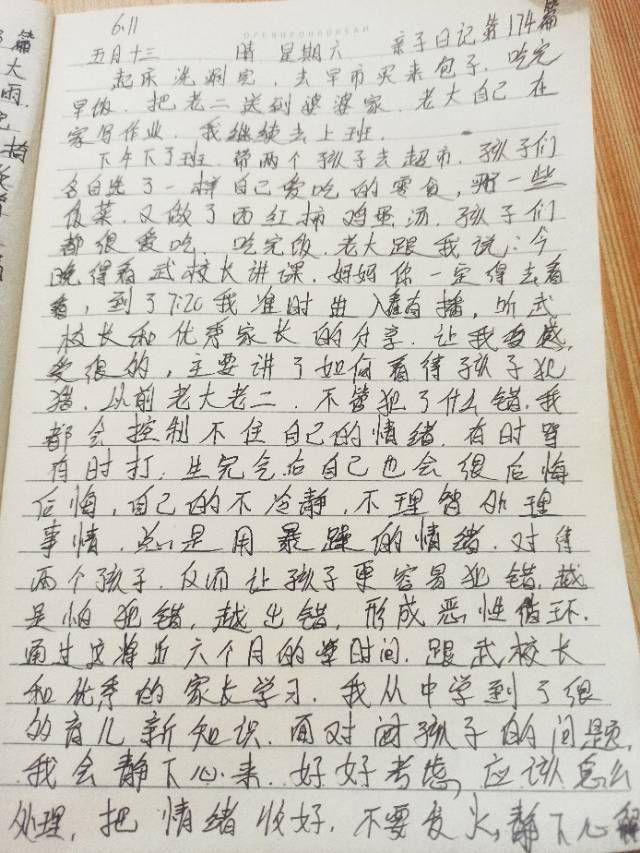 篇
大
雨.
6.11
OPENUPYOURDREAM
五月十三 晴 星期六 亲子日记第174篇
起床洗涮完,去早市买来包子.吃完
早饭.把老二送到婆婆家.老大自己在
家写作业.我继续去上班.
下午下了班.带两个孩子去超市.孩子们
各自选了一样自己爱吃的零食,一些
菜.又做了西红柿鸡蛋汤.孩子们
都很爱吃.吃完饭.老大跟我说:今
晚得看武校长讲课.妈妈你一定得去看
看,到了7:20我准时进入直播,听武
校长和优秀家长的分享.让我感
受很的,主要讲了如何看待孩子犯
错.从前老大老二.不管犯了什么错.我
都会控制不住自己的情绪.有时骂
有时打;生完气后自己也会很后悔
后悔,自己的不冷静,不理智处理
事情.总是用暴躁的情绪.对待
两个孩子.反而让孩子更容易犯错.越
是怕犯错,越出错,形成恶性循环.
通过这将近六个月的学时间.跟武校长
和优秀的家长学习.我从中学到了很
的育儿新知识.面对孩子的问题,
我会静下心来.好好考虑,应该怎么
处理,把情绪收好.不要发火,静下心